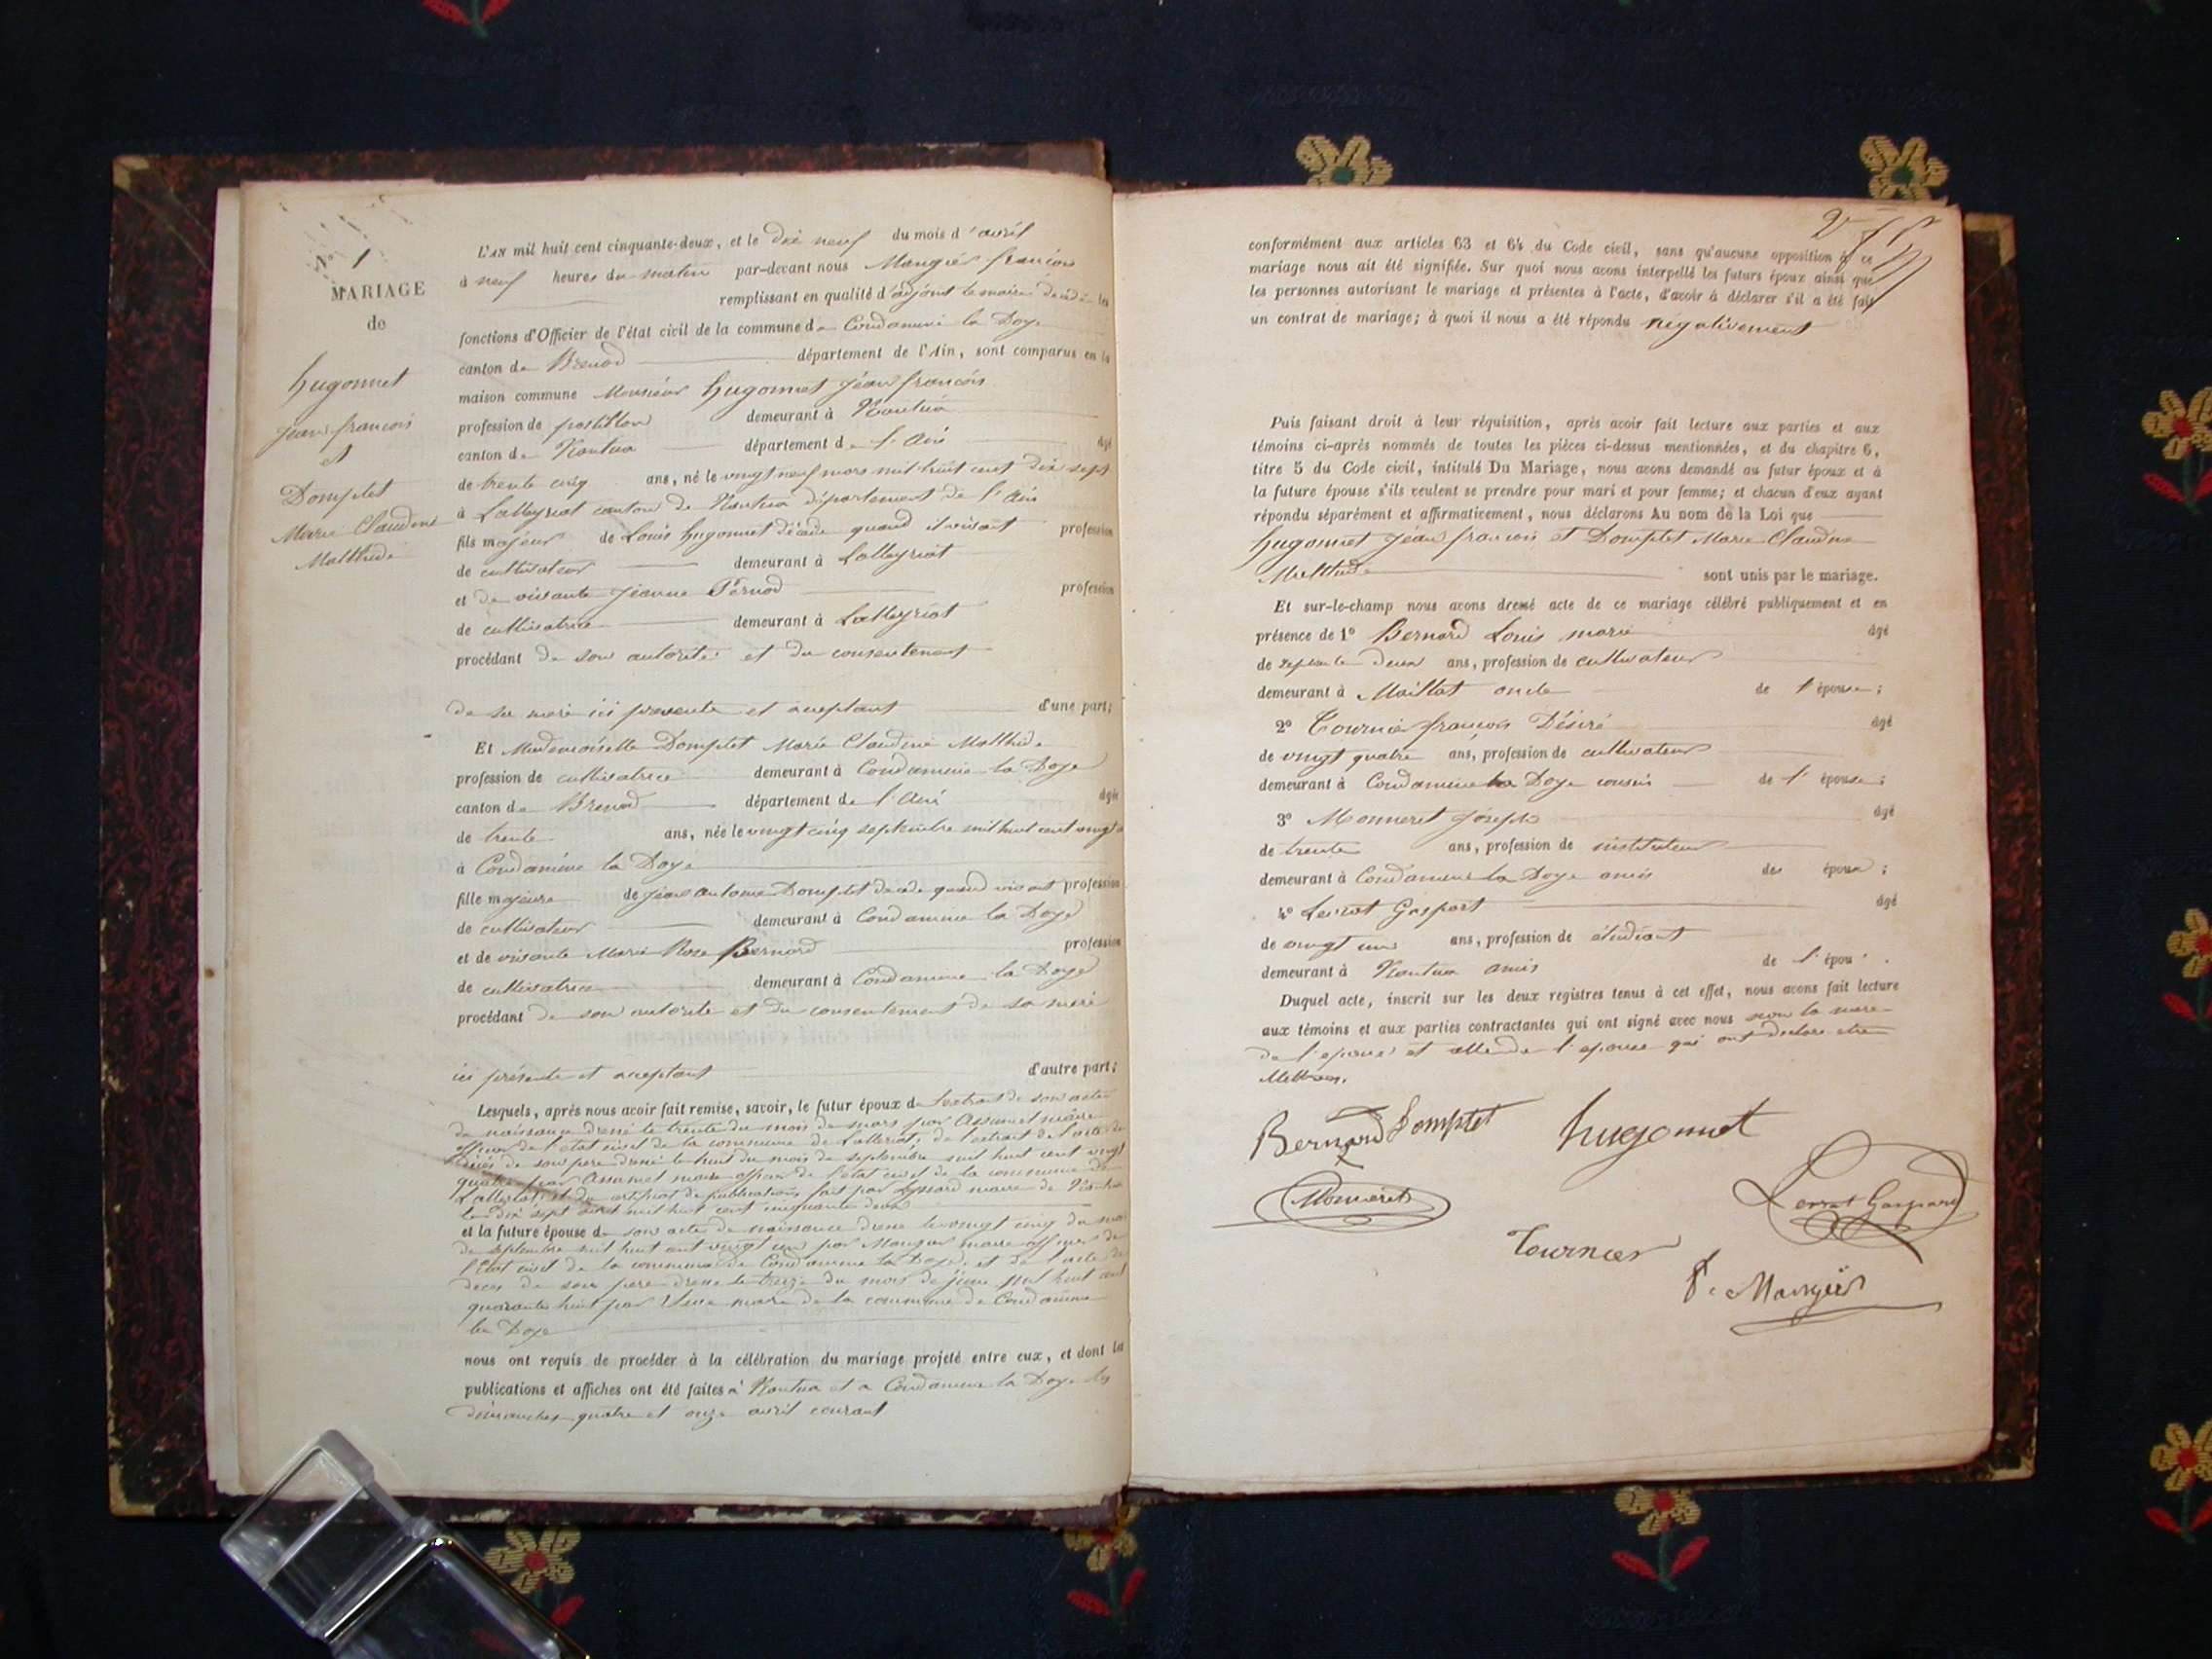 N° 1
MARIAGE
de
hugonnet
jean francois
et
Domptet
Marie Claudine
Malthide
L'AN mil huit cent cinquante-deux, et le dix neuf du mois d'avril
à neuf heures du matin par-devant nous Mangier francois
remplissant en qualité d'adjoint le maire décédé les
fonctions d'Officier de l'état civil de la commune de Condamine la Doye
canton de Brenod département de l'Ain, sont comparus en la
maison commune Monsieur hugonnet jean francois
profession de postillon demeurant à Nantua
canton de Nantua département de l'Ain âgé
de trente cinq ans, né le vingt neuf mars mil huit cent dix sept
à Lalleyriat canton de Nantua département de l'Ain
fils majeur de Louis hugonnet décédé quand vivait profession
de cultivateur demeurant à Lalleyriat
et de vivante jeanne Pernod profession
de cultivatrice demeurant à Lalleyriat
procédant de son autorité et du consentement
de sa mere ici presente et aceptant d'une part;
Et Mademoiselle Domptet Marie Claudine Malthide
profession de cultivatrice demeurant à Condamine la Doye
canton de Brenod département de l'Ain âgée
de trente ans, née le vingt cinq septembre mil huit cent vingt
à Condamine la Doye
fille majeure de jean antoine Domptet décédé quand vivait profession
de cultivateur demeurant à Condamine la Doye
et de vivante Marie Rose Bernard profession
de cultivatrice demeurant à Condamine la Doye
procédant de son autorité et du consentement de sa mere
ici présente et aceptant d'autre part;
Lesquels, après nous avoir fait remise, savoir, le futur époux de l'extrait de son acte
de naissance dressé le trente du mois de mars par maire
officier de l'état civil de la commune de Lalleriat, de l'extrait de l'acte de
décès de son pere dressé le huit du mois de septembre mil huit cent vingt
quatre par maire officier de l'état civil de la commune de
Lalleriat, et du certificat de publications fait par maire de Nantua
le dix sept avril mil huit cent cinquante deux
et la future épouse de son acte de naissance dressé le vingt cinq du mois
de septembre mil huit cent vingt un par Mangier maire officier de
l'Etat civil de la commune de Condamine la Doye, et de l'acte de
deces de son pere dressé le treize du mois de juin mil huit cent
quarante huit par maire de la commune de Condamine
la Doye
nous ont requis de procéder à la célébration du mariage projeté entre eux, et dont les
publications et affiches ont été faites à Nantua et a Condamine la Doye les
dimanches quatre et onze avril courant
conformément aux articles 63 et 64 du Code civil, sans qu'aucune opposition à ce
mariage nous ait été signifiée. Sur quoi nous avons interpellé les futurs époux ainsi que
les personnes autorisant le mariage et présentes à l'acte, d'avoir à déclarer s'il a été fait
un contrat de mariage; à quoi il nous a été répondu négativement
Puis faisant droit à leur réquisition, après avoir fait lecture aux parties et aux
témoins ci-après nommés de toutes les pièces ci-dessus mentionnées, et du chapitre 6,
titre 5 du Code civil, intitulé Du Mariage, nous avons demandé au futur époux et à
la future épouse s'ils veulent se prendre pour mari et pour femme; et chacun d'eux ayant
répondu séparément et affirmativement, nous déclarons Au nom de la Loi que
hugonnet jean francois et Domptet Marie Claudine
Malthide sont unis par le mariage.
Et sur-le-champ nous avons dressé acte de ce mariage célébré publiquement et en
présence de 1° Bernard Louis marie âgé
de septante deux ans, profession de cultivateur
demeurant à Maillat oncle de l'épouse;
2° Tournier francois Désiré âgé
de vingt quatre ans, profession de cultivateur
demeurant à Condamine la Doye cousin de l'épouse;
3° Monneret joseph âgé
de trente ans, profession de instituteur
demeurant à Condamine la Doye amis des époux;
4° Gaspart âgé
de vingt un ans, profession de étudiant
demeurant à Nantua amis de l'épou
Duquel acte, inscrit sur les deux registres tenus à cet effet, nous avons fait lecture
aux témoins et aux parties contractantes qui ont signé avec nous non la mere
de l'epoux et celle de l'epouse qui ont declare etre
Bernard Domptet hugonnet
Monneret
Gaspard
Tournier
F. Mangier